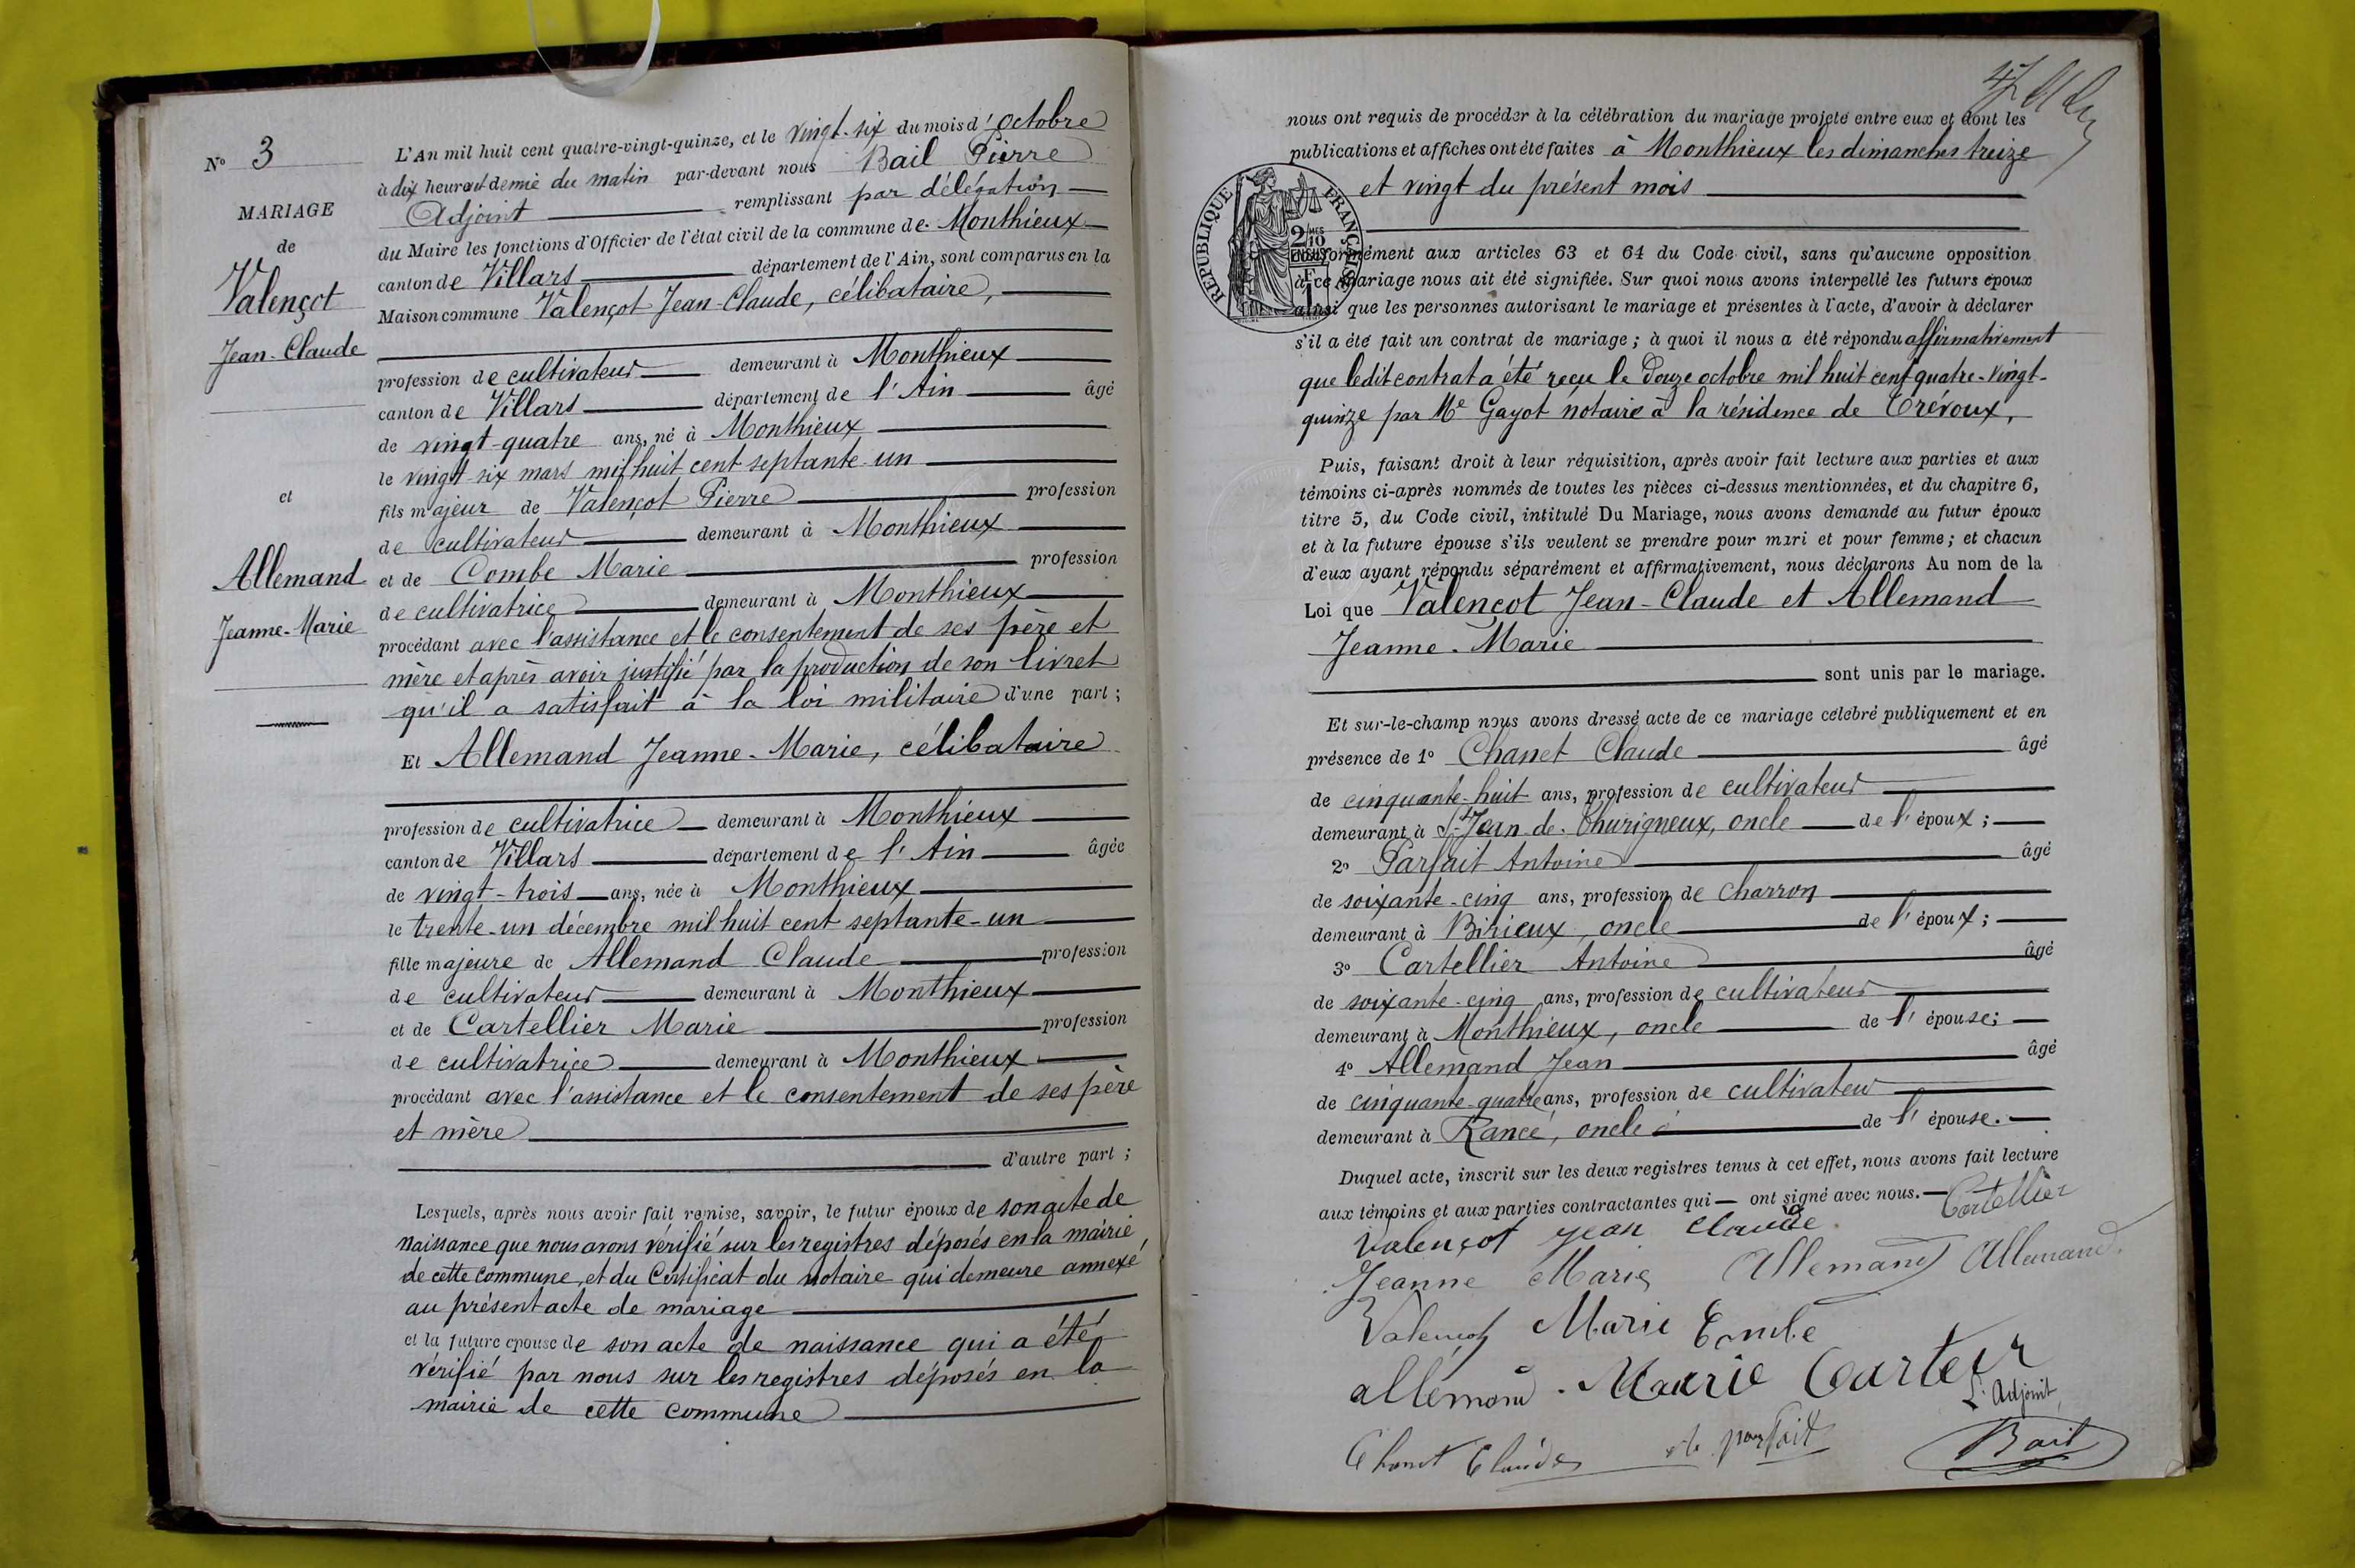 N° 3
MARIAGE
de
Valençot
Jean-Claude
et
Allemand
Jeanne-Marie
L'An mil huit cent quatre-vingt-quinze, et le vingt-six du mois d'octobre
à dix heures et demie du matin par-devant nous Bail Pierre
Adjoint remplissant par délégation
du Maire les fonctions d'Officier de l'état civil de la commune de Monthieux
canton de Villars département de l'Ain, sont comparus en la
Maison commune Valençot Jean-Claude, célibataire,
profession de cultivateur demeurant à Monthieux
canton de Villars département de l'Ain âgé
de vingt-quatre ans, né à Monthieux
le vingt-six mars mil huit cent septante-un
fils majeur de Valençot Pierre profession
de cultivateur demeurant à Monthieux
et de Combe Marie profession
de cultivatrice demeurant à Monthieux
procédant avec l'assistance et le consentement de ses père et
mère et après avoir justifié par la production de son livret
qu'il a satisfait à la loi militaire d'une part;
Et Allemand Jeanne-Marie, célibataire
profession de cultivatrice demeurant à Monthieux
canton de Villars département de l'Ain âgée
de vingt-trois ans, née à Monthieux
le trente-un décembre mil huit cent septante-un
fille majeure de Allemand Claude profession
de cultivateur demeurant à Monthieux
et de Cartellier Marie profession
de cultivatrice demeurant à Monthieux
procédant avec l'assistance et le consentement de ses père
et mère
d'autre part;
Lesquels, après nous avoir fait remise, savoir, le futur époux de son acte de
naissance que nous avons vérifié sur les registres déposés en la mairie
de cette commune, et du Certificat du notaire qui demeure annexé
au présent acte de mariage
et la future épouse de son acte de naissance qui a été
vérifié par nous sur les registres déposés en la
mairie de cette commune
nous ont requis de procéder à la célébration du mariage projeté entre eux et dont les
publications et affiches ont été faites à Monthieux les dimanches treize
et vingt du présent mois
RÉPUBLIQUE FRANÇAISE
2/10
conformément aux articles 63 et 64 du Code civil, sans qu'aucune opposition
à ce mariage nous ait été signifiée. Sur quoi nous avons interpellé les futurs époux
ainsi que les personnes autorisant le mariage et présentes à l'acte, d'avoir à déclarer
s'il a été fait un contrat de mariage; à quoi il nous a été répondu affirmativement
que ledit contrat a été reçu le douze octobre mil huit cent quatre-vingt-
quinze par Me Gayot notaire à la résidence de Trévoux,
Puis, faisant droit à leur réquisition, après avoir fait lecture aux parties et aux
témoins ci-après nommés de toutes les pièces ci-dessus mentionnées, et du chapitre 6,
titre 5, du Code civil, intitulé Du Mariage, nous avons demandé au futur époux
et à la future épouse s'ils veulent se prendre pour mari et pour femme; et chacun
d'eux ayant répondu séparément et affirmativement, nous déclarons Au nom de la
Loi que Valençot Jean-Claude et Allemand
Jeanne-Marie
sont unis par le mariage.
Et sur-le-champ nous avons dressé acte de ce mariage célébré publiquement et en
présence de 1° Chanet Claude âgé
de cinquante-huit ans, profession de cultivateur
demeurant à St-Jean-de-Thurigneux, oncle de l'époux;
2° Parfait Antoine âgé
de soixante-cinq ans, profession de charron
demeurant à Birieux, oncle de l'époux;
3° Cartellier Antoine âgé
de soixante-cinq ans, profession de cultivateur
demeurant à Monthieux, oncle de l'épouse;
4° Allemand Jean âgé
de cinquante-quatre ans, profession de cultivateur
demeurant à Rancé, oncle de l'épouse.
Duquel acte, inscrit sur les deux registres tenus à cet effet, nous avons fait lecture
aux témoins et aux parties contractantes qui ont signé avec nous. Cartellier
Valençot jean claude
Jeanne Marie Allemand Allemand
Valençot Marie Combe
allemand. Marie Carte
L'Adjoint,
Chanet Claude parfait Bail